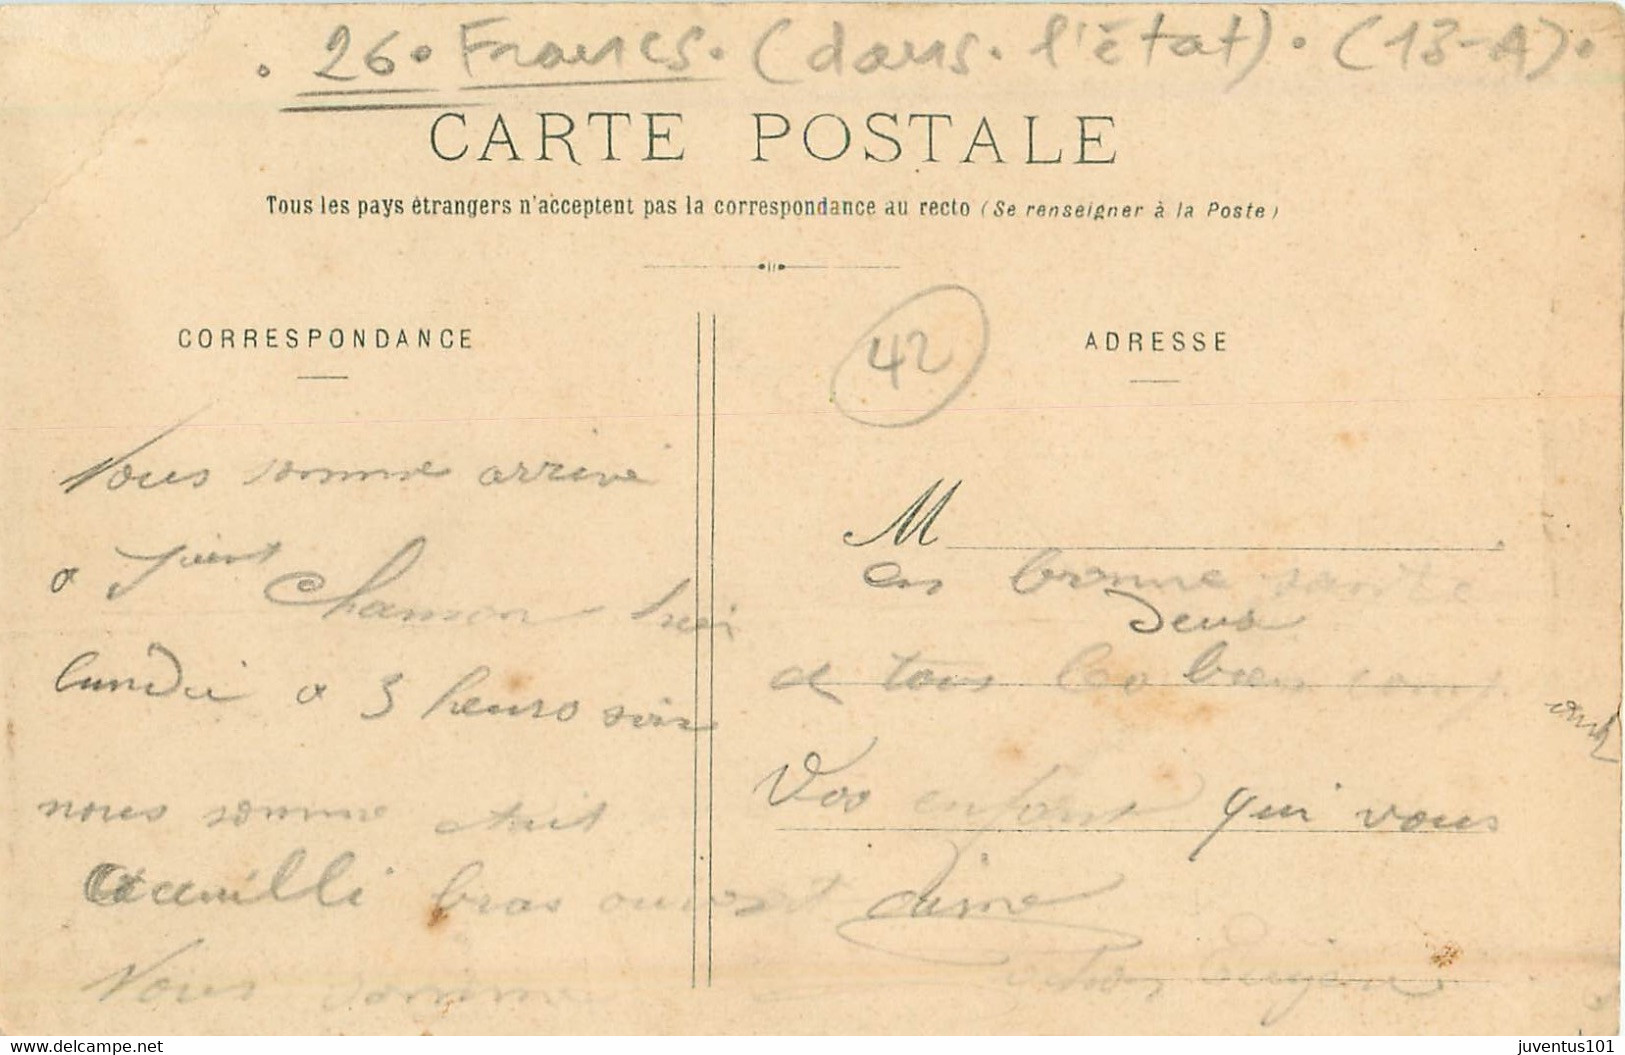 . 26. Francs. (dans. l'état). (13-A).
CARTE POSTALE
Tous les pays étrangers n'acceptent pas la correspondance au recto (Se renseigner à la Poste)
CORRESPONDANCE
Nous somme arrive
a Saint Chamon hier
lundi a 3 heures soir
nous somme etait
acceuilli bras ouvert
Nous somme
42
ADRESSE
M
en bonne sante
deux
Vos enfant qui vous
aime
Eugene
www.delcampe.net
juventus101